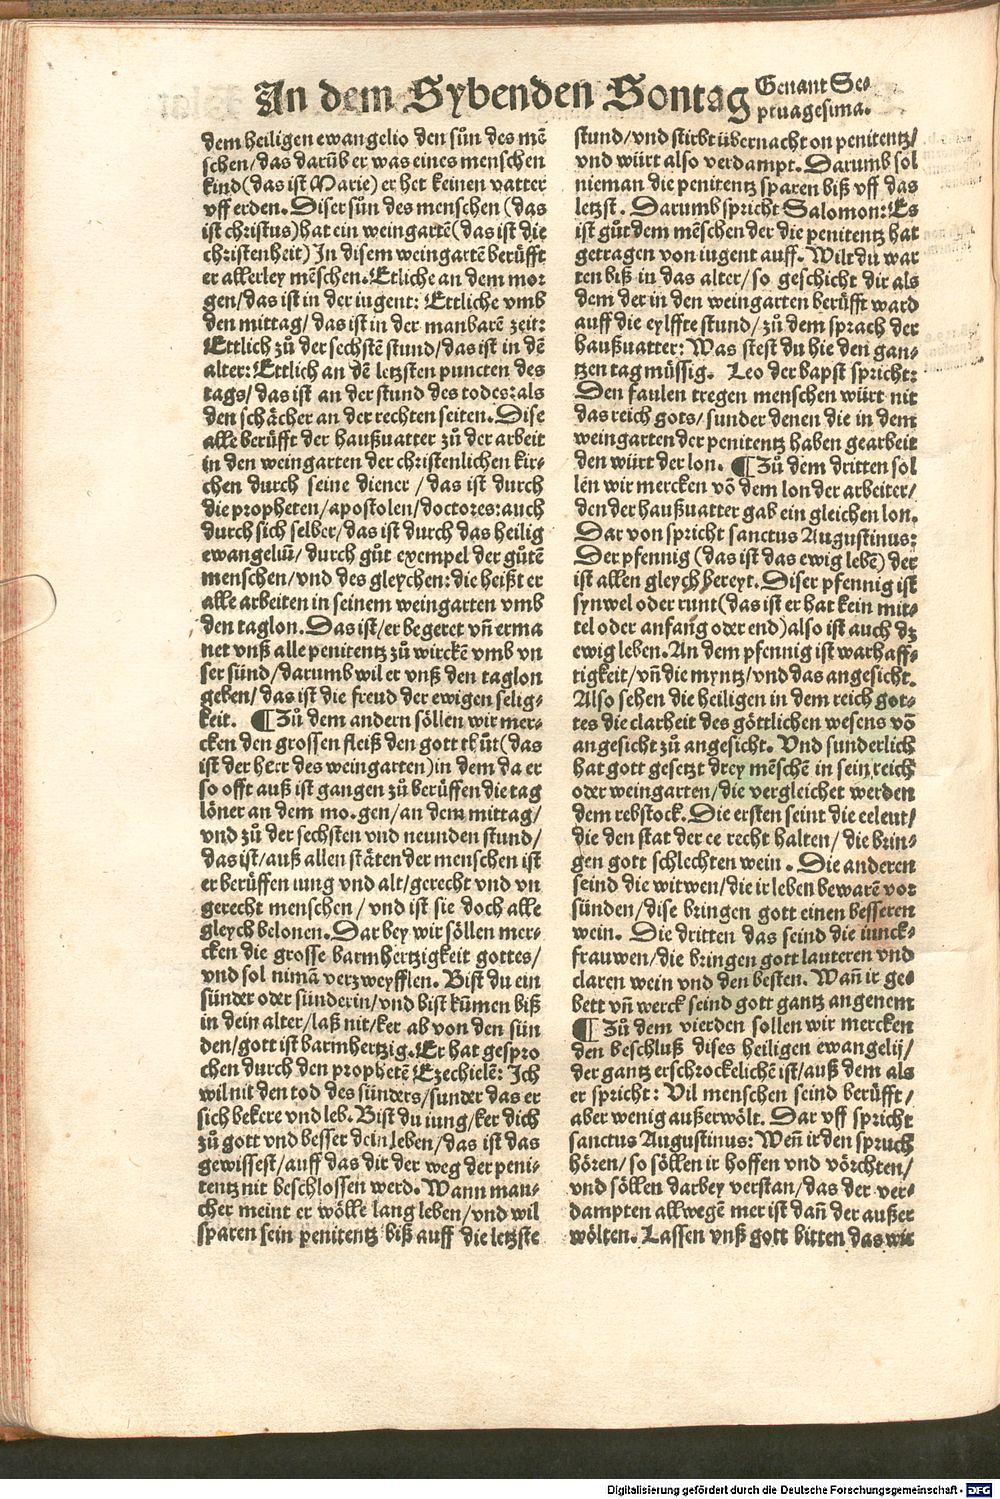 In dem Sybenden Sontag Genant Se⸗
ptuagesima.
dem heiligen ewangelio den sůn des mē
schen/das darūb er was eines menschen
kind(das ist Marie) er het keinen vatter
vff erden. Diser sůn des menschen (das
ist christus)hat ein weingartē(das ist die
christenheit) In disem weingartē berüfft
er allerley mēschen. Etliche an dem mor
gen/das ist in der iugent: Ettliche vmb
den mittag/das ist in der manbarē zeit:
Ettlich zů der sechstē stund/das ist in dē
alter: Ettlich an dē letzsten puncten des
tags/das ist an der stund des todes:als
den schächer an der rechten seiten. Dise
alle berüfft der haußuatter zů der arbeit
in den weingarten der christenlichen kir⸗
chen durch seine diener/das ist durch
die propheten/apostolen/doctores:auch
durch sich selber/das ist durch das heilig
ewangeliū/durch gůt exempel der gůtē
menschen/vnd des gleychen:die heißt er
alle arbeiten in seinem weingarten vmb
den taglon. Das ist/er begeret vn̄ erma
net vnß alle penitentz zů wirckē vmb vn
ser sünd/darumb wil er vnß den taglon
geben/das ist die freud der ewigen selig⸗
keit. ¶ Zů dem andern söllen wir mer⸗
cken den grossen fleiß den gott thůt(das
ist der herr des weingarten)in dem da er
so offt auß ist gangen zů berüffen die tag
löner an dem morgen/an dem mittag/
vnd zů der sechsten vnd neunden stund/
das ist/auß allen stäten der menschen ist
er berüffen iung vnd alt/gerecht vnd vn
gerecht menschen/vnd ist sie doch alle
gleych belonen. Dar bey wir söllen mer⸗
cken die grosse barmhertzigkeit gottes/
vnd sol nimā verzweyfflen. Bist du ein
sünder oder sünderin/vnd bist kūmen biß
in dein alter/laß nit/ker ab von den sün
den/gott ist barmhertzig. Er hat gespro
chen durch den prophetē Ezechielē: Ich
wil nit den tod des sünders/sunder das er
sich bekere vnd leb. Bist du iung/ker dich
zů gott vnd besser dein leben/das ist das
gewissest/auff das dir der weg der peni⸗
tentz nit beschlossen werd. Wann man⸗
cher meint er wölle lang leben/vnd wil
sparen sein penitentz biß auff die letzste
stund/vnd stirbt übernacht on penitentz/
vnd würt also verdampt. Darumb sol
nieman die penitentz sparen biß vff das
letzst. Darumb spricht Salomon: Es
ist gůt dem mēschen der die penitentz hat
getragen von iugent auff. Wilt du war
ten biß in das alter/so geschicht dir als
dem der in den weingarten berüfft ward
auff die eylffte stund/zů dem sprach der
haußuatter: Was stest du hie den gan⸗
tzen tag müssig. Leo der bapst spricht:
Den faulen tregen menschen würt nit
das reich gots/sunder denen die in dem
weingarten der penitentz haben gearbeit
den würt der lon. ¶ Zů dem dritten sol
len wir mercken vō dem lon der arbeiter/
den der haußuatter gab ein gleichen lon.
Dar von spricht sanctus Augustinus:
Der pfennig (das ist das ewig lebē) der
ist allen gleych bereyt. Diser pfennig ist
synwel oder runt(das ist er hat kein mit⸗
tel oder anfang oder end)also ist auch dz
ewig leben. An dem pfennig ist warhaff⸗
tigkeit/vn̄ die myntz/vnd das angesicht.
Also sehen die heiligen in dem reich got⸗
tes die clarheit des göttlichen wesens vō
angesicht zů angesicht. Vnd sunderlich
hat gott gesetzt drey mēschē in sein reich
oder weingarten/die vergleichet werden
dem rebstock. Die ersten seint die eeleut/
die den stat der ee recht halten/die brin⸗
gen gott schlechten wein. Die anderen
seind die witwen/die ir leben bewarē vor
sünden/dise bringen gott einen besseren
wein. Die dritten das seind die iunck⸗
frauwen/die bringen gott lauteren vnd
claren wein vnd den besten. Wan̄ ir ge⸗
bett vn̄ werck seind gott gantz angenem
¶ Zů dem vierden sollen wir mercken
den beschluß dises heiligen ewangelij/
der gantz erschrockelichē ist/auß dem als
er spricht: Vil menschen seind berüfft/
aber wenig außerwölt. Dar vff spricht
sanctus Augustinus: Wen̄ ir den spruch
hören/so söllen ir hoffen vnd vörchten/
vnd söllen darbey verstan/das der ver⸗
dampten allwegē mer ist dan̄ der außer
wölten. Lassen vnß gott bitten das wir
Digitalisierung gefördert durch die Deutsche Forschungsgemeinschaft - DFG